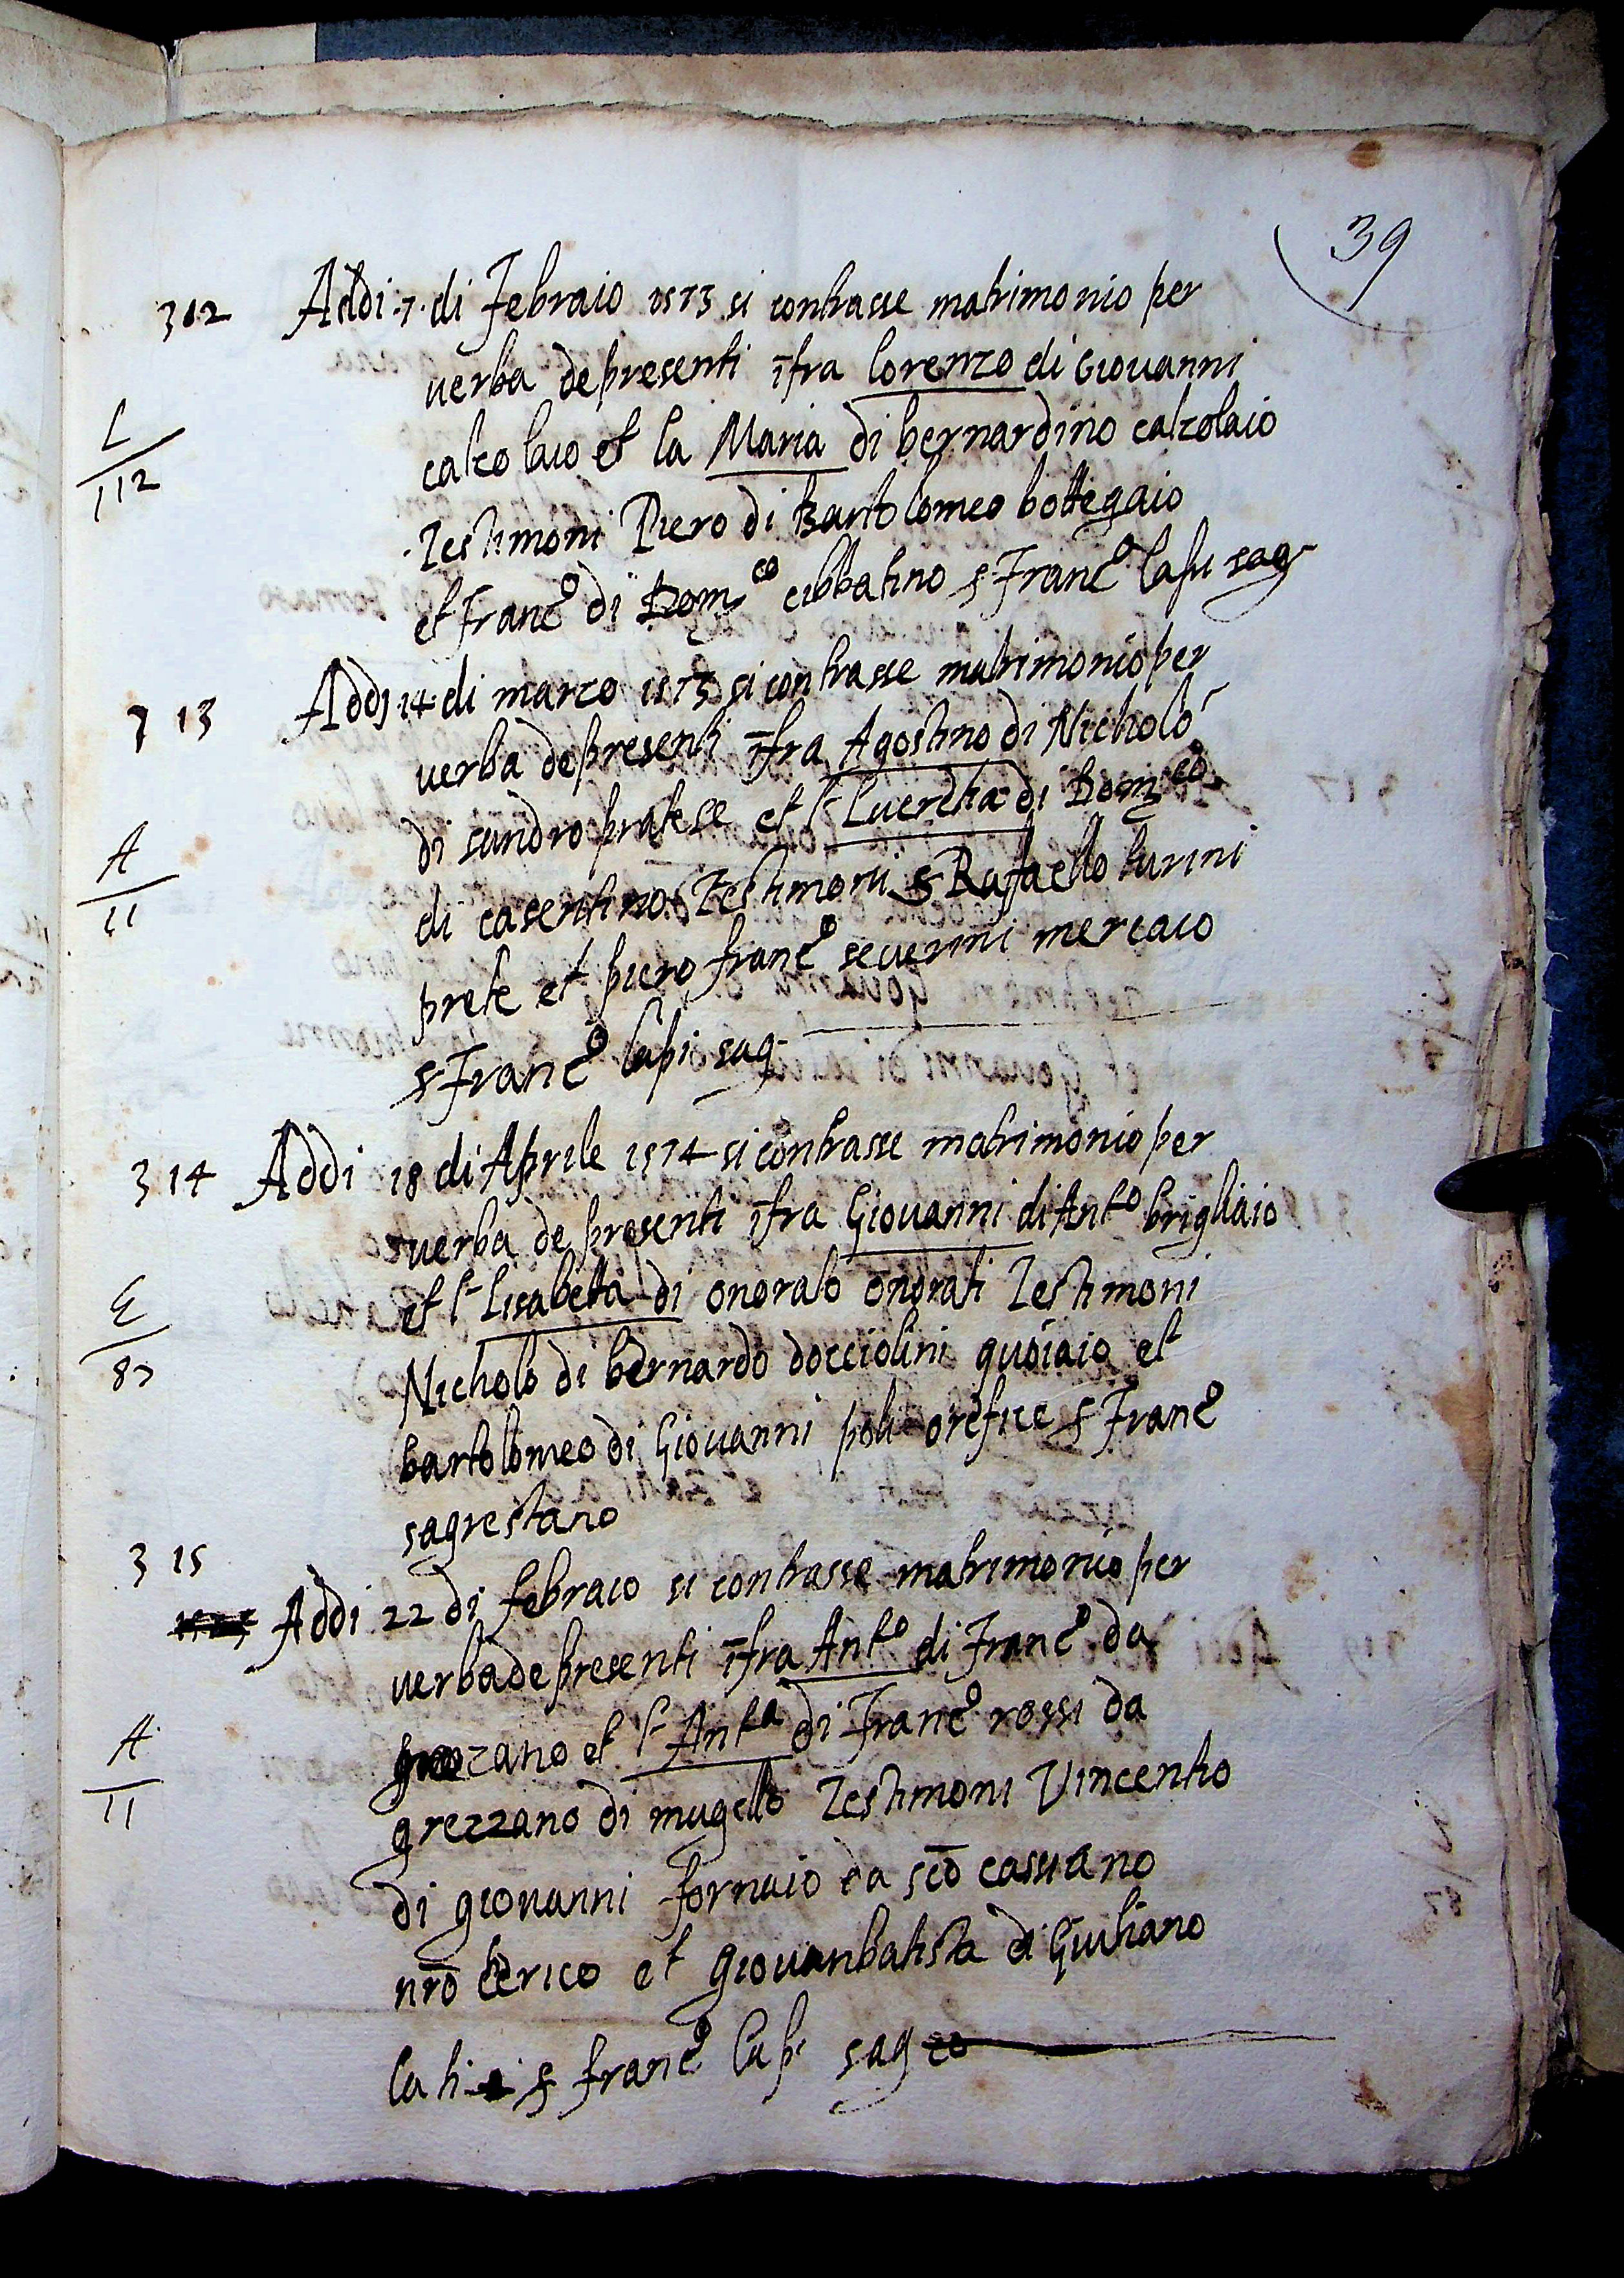 39
312 Addi 7 di Febraio 1573 si contrasse matrimonio per
verba de presenti ifra lorenzo di Giovanni
L
112
calzolaio et la Maria di bernardino calzolaio
Testimoni Piero di Bartolomeo bottegaio
et Franco di Domco cibbatino s Franco lapi sag
313 Addi 14 di marzo 1573 si contrasse matrimonio per
verba de presenti ifra Agostino di Nicholò
di sandro pratese et l Lucretia di Domco
A
11
di casentino Testimoni s Rafaello turini
prete et piero franco severini merciaio
s Franco lapi sag
314 Addi 18 di Aprile 1574 si contrasse matrimonio per
verba de presenti ifra Giovanni di Anto brigliaio
et l Lisabetta di onorato onorati Testimoni
E
87
Nicholò di bernardo docciolini quoiaio et
bartolomeo di Giovanni poli orefice s Franco
sagrestano
315
Addi 22 di febraio si contrasse matrimonio per
verba de presenti ifra Anto di Franco da
A
11
grezzano et l Anta di Franco rossi da
grezzano di mugello Testimoni Vincentio
di giovanni fornaio da sco cassiano
nro cerico et giovanbatista di Giuliano
s franco lapi sag